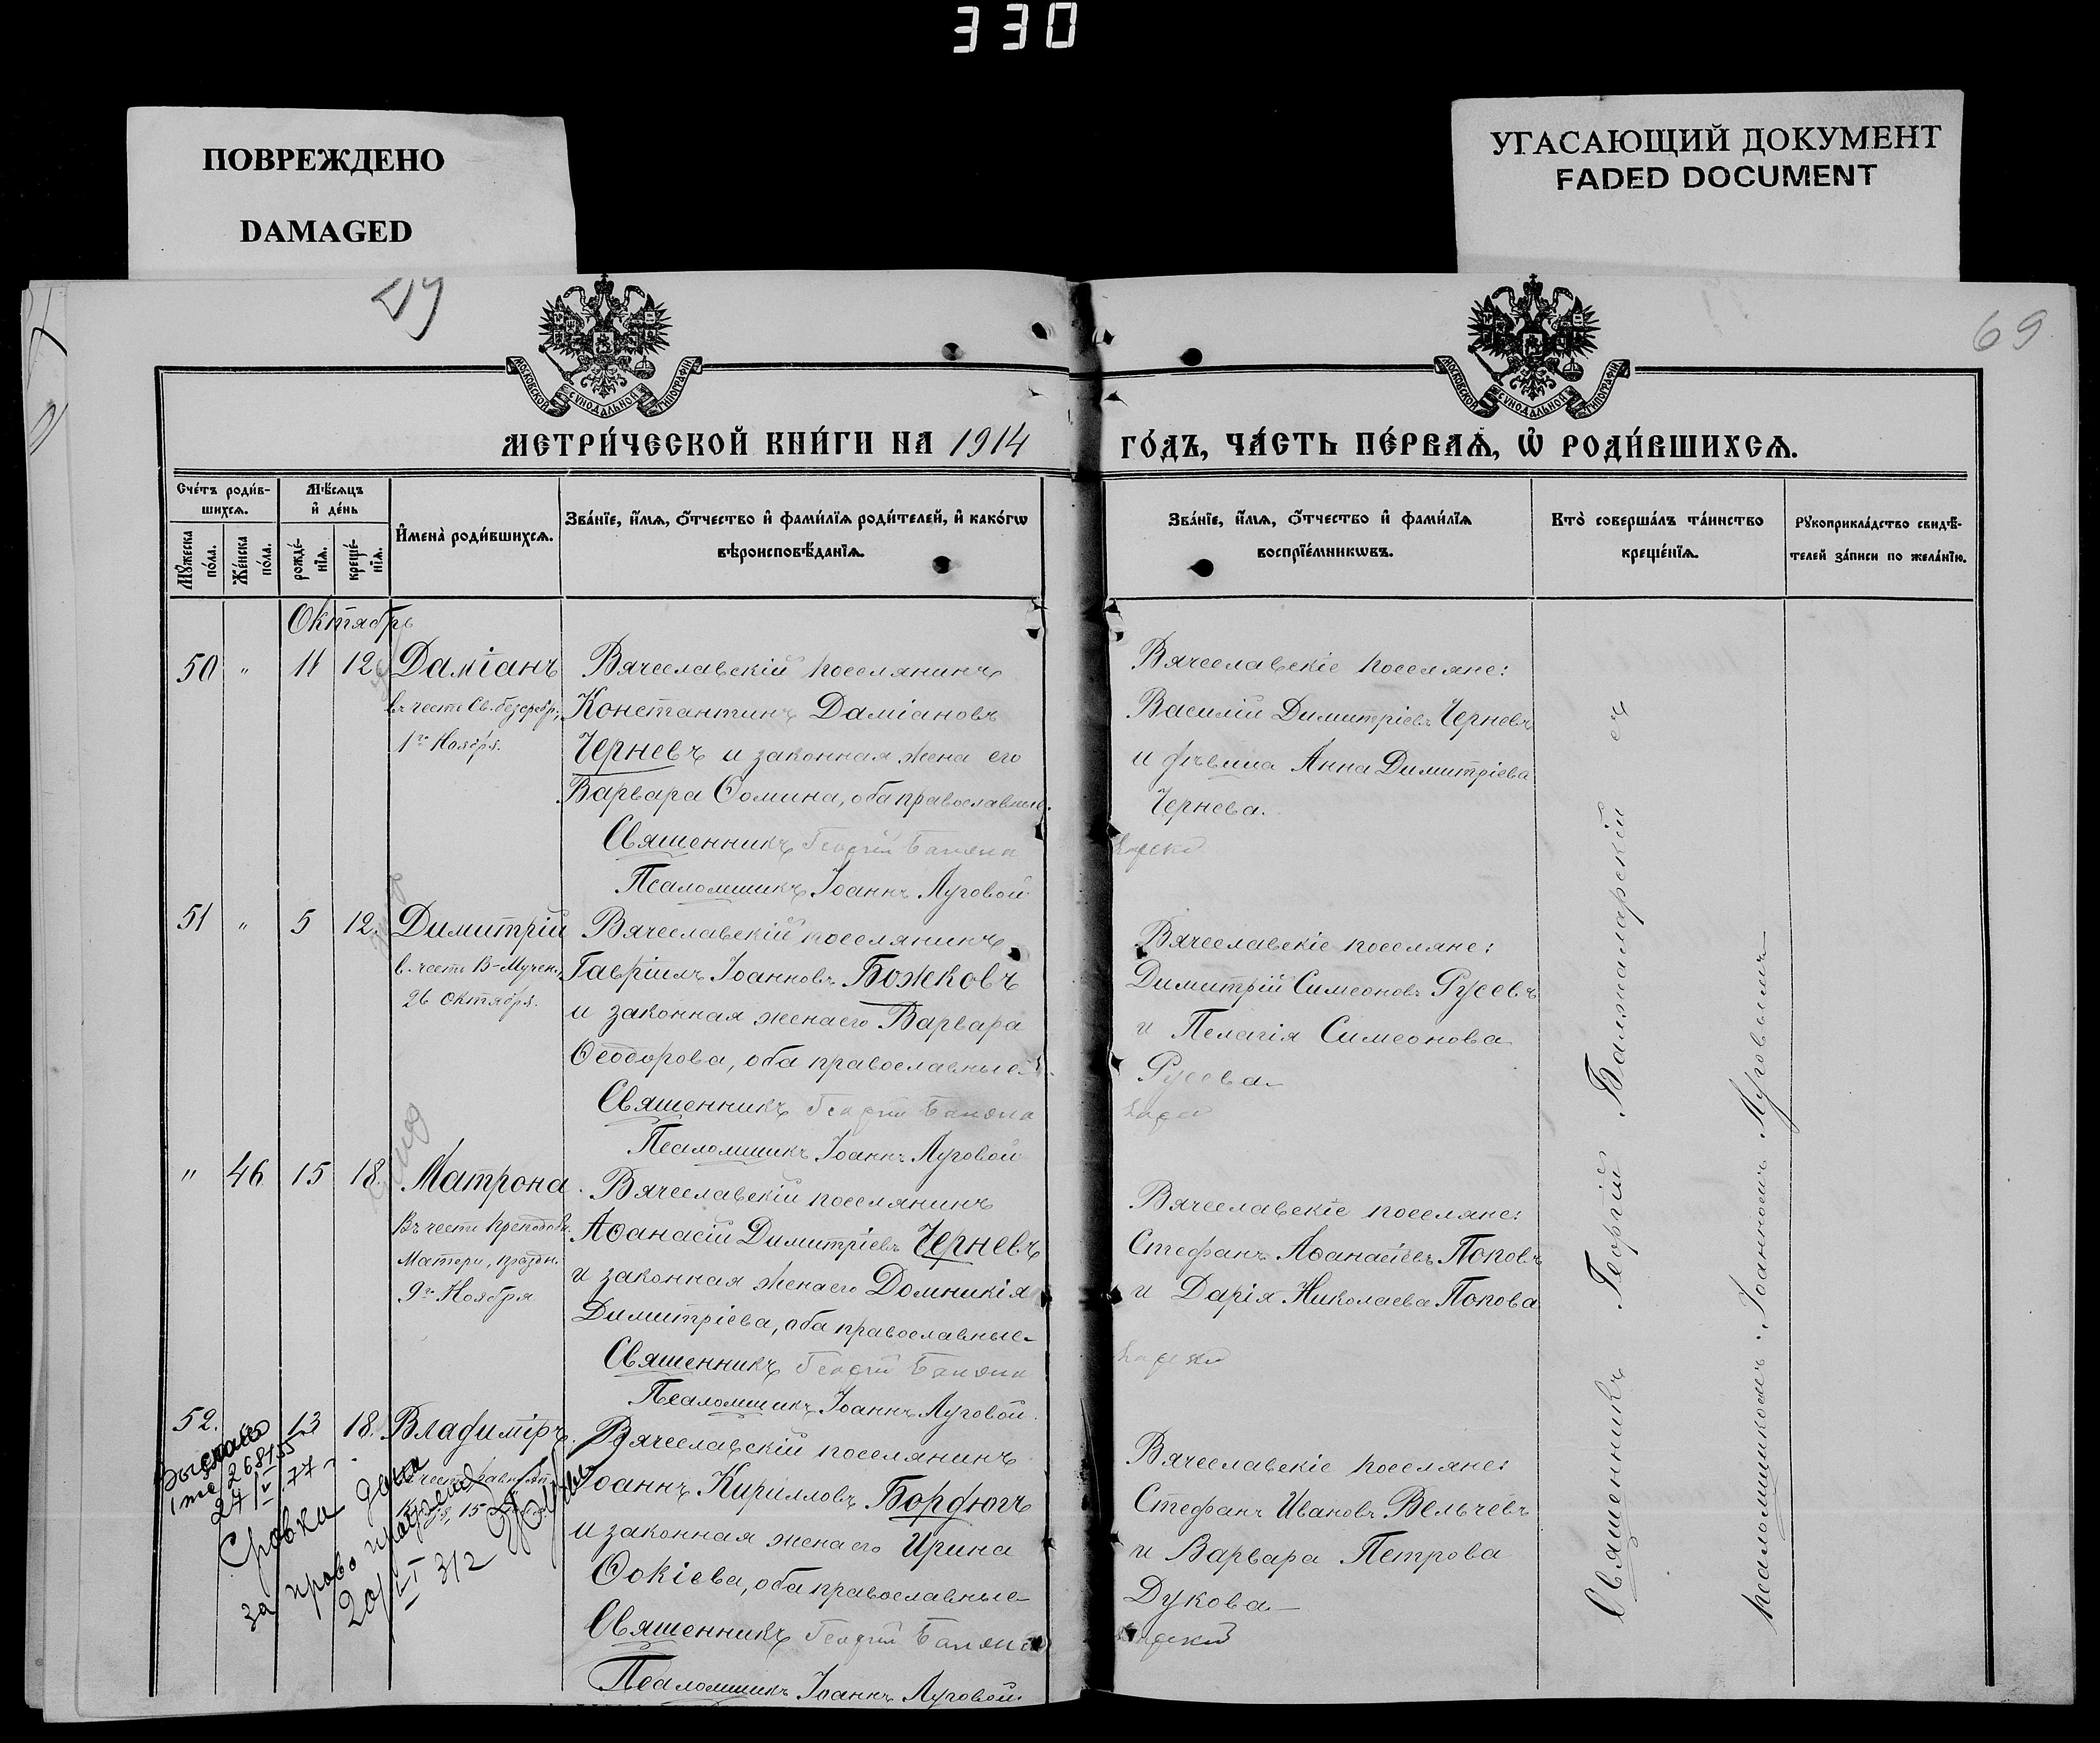 330
ПОВРЕЖДЕНО
DAMAGED
УГАСАЮЩИЙ ДОКУМЕНТ
FADED DOCUMENT
69
МОСКОВСКОЙ СѴНОДАЛЬНОЙ ТИПОГРАФІИ
МОСКОВСКОЙ СѴНОДАЛЬНОЙ ТИПОГРАФІИ
МЕТРИ́ЧЕСКОЙ КНИ́ГИ НА 1914 ГО́ДЪ, ЧА́СТЬ ПЕ́РВАѦ, Ѡ҆ РОДИ́ВШИХСѦ.
Сче́тъ роди́в-
шихсѧ.
Мꙋ́жеска по́ла.
Же́нска по́ла.
Мѣ́сѧцъ
и҆ де́нь
рожде́-нїѧ.
креще́-нїѧ.
И҆мена̀ роди́вшихсѧ.
Зва́нїе, и҆́мѧ, ѻ҆́тчество и҆ фами́лїѧ роди́телей, и҆ како́гѡ
вѣроисповѣ́данїѧ.
Зва́нїе, и҆́мѧ, ѻ҆́тчество и҆ фами́лїѧ
воспрїе́мникѡвъ.
Кто̀ соверша́лъ та́инство
креще́нїѧ.
Рꙋкоприкла́дство свидѣ́-
телей за́писи по жела́нїю.
Октябрь
50 " 11 12 Даміанъ
въ честь Св. безсребр.,
1го Ноября.
Вячеславскій поселянинъ
Константинъ Даміановъ
Черневъ и законная жена его
Варвара Ѳомина, оба православные.
Священникъ Георгій Балжаларскій
Псаломщикъ Іоаннъ Луговой
Вячеславскіе поселяне:
Василій Димитріевъ Черневъ
и дѣвица Анна Димитріева
Чернева.
51 " 5 12. Димитрій
въ честь В-Мучен.,
26 Октября.
Вячеславскій поселянинъ
Гавріилъ Іоанновъ Божковъ
и законная жена его Варвара
Ѳеодорова, оба православные.
Священникъ Георгій Балжаларскій
Псаломщикъ Іоаннъ Луговой
Вячеславскіе поселяне:
Димитрій Симеоновъ Русевъ
и Пелагія Симеонова
Русева
" 46 15 18. Матрона
Въ честь преподобн.
Матери, праздн.
9го Ноября
Вячеславскій поселянинъ
Аѳанасій Димитріевъ Черневъ
и законная жена его Домникія
Димитріева, оба православные
Священникъ Георгій Балжаларскій
Псаломщикъ Іоаннъ Луговой.
Вячеславскіе поселяне:
Стефанъ Аѳанасіевъ Поповъ
и Дарія Николаева Попова
52. 13 18. Владиміръ
въ честь равноап.
15
Вячеславскій поселянинъ
Іоаннъ Кирилловъ Бордюгъ
и законная жена его Ирина
Ѳокіева, оба православные
Священникъ Георгій Балжаларскій
Псаломщикъ Іоаннъ Луговой.
Вячеславскіе поселяне:
Стефанъ Ивановъ Вельчевъ
и Варвара Петрова
Дукова
Выслано
268155
24/V 77
Справка дана
за право
20/VI 312
Священникъ Георгій Балжаларскій съ
псаломщикомъ Іоанномъ Луговымъ